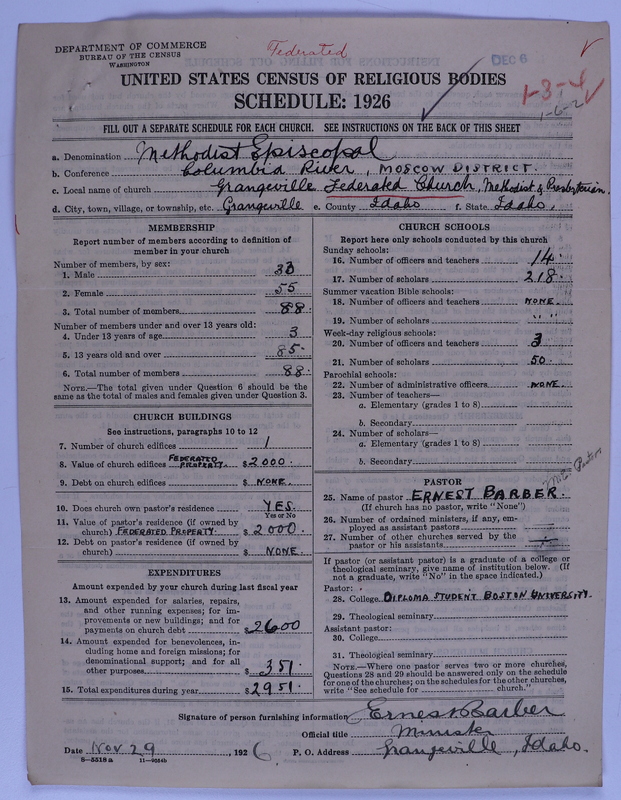 DEPARTMENT OF COMMERCE
BUREAU OF THE CENSUS
WASHINGTON
Federated
DEC 6
UNITED STATES CENSUS OF RELIGIOUS BODIES
SCHEDULE: 1926
1-3-4
1-6-2
FILL OUT A SEPARATE SCHEDULE FOR EACH CHURCH. SEE INSTRUCTIONS ON THE BACK OF THIS SHEET
a. Denomination Methodist Episcopal
b. Conference Columbia River, MOSCOW DISTRICT.
c. Local name of church Grangeville Federated Church, Methodist & Presbyterian.
d. City, town, village, or township, etc. Grangeville e. County Idaho f. State Idaho,
MEMBERSHIP
Report number of members according to definition of
member in your church
Number of members, by sex:
1. Male 33
2. Female 55
3. Total number of members 88.
Number of members under and over 13 years old:
4. Under 13 years of age 3
5. 13 years old and over 85.
6. Total number of members 88.
NOTE.—The total given under Question 6 should be the
same as the total of males and females given under Question 3.
CHURCH BUILDINGS
See instructions, paragraphs 10 to 12
7. Number of church edifices 1
8. Value of church edifices FEDERATED PROPERTY. $2000.
9. Debt on church edifices $ NONE.
10. Does church own pastor's residence YES.
Yes or No
11. Value of pastor's residence (if owned by
church) FEDERATED PROPERTY. $2000.
12. Debt on pastor's residence (if owned by
church) $ NONE.
EXPENDITURES
Amount expended by your church during last fiscal year
13. Amount expended for salaries, repairs,
and other running expenses; for im-
provements or new buildings; and for
payments on church debt $2600
14. Amount expended for benevolences, in-
cluding home and foreign missions; for
denominational support; and for all
other purposes $ 351.
15. Total expenditures during year $2951.
CHURCH SCHOOLS
Report here only schools conducted by this church
Sunday schools:
16. Number of officers and teachers 14.
17. Number of scholars 218.
Summer vacation Bible schools:
18. Number of officers and teachers NONE.
19. Number of scholars " "
Week-day religious schools:
20. Number of officers and teachers 3
21. Number of scholars 50.
Parochial schools:
22. Number of administrative officers NONE.
23. Number of teachers—
a. Elementary (grades 1 to 8)
b. Secondary
24. Number of scholars—
a. Elementary (grades 1 to 8)
b. Secondary
PASTOR
Pastor
25. Name of pastor ERNEST BARBER.
(If church has no pastor, write "None")
26. Number of ordained ministers, if any, em-
ployed as assistant pastors
27. Number of other churches served by the
pastor or his assistants
If pastor (or assistant pastor) is a graduate of a college or
theological seminary, give name of institution below. (If
not a graduate, write "No" in the space indicated.)
Pastor:
28. College DIPLOMA STUDENT BOSTON UNIVERSITY.
29. Theological seminary
Assistant pastor:
30. College
31. Theological seminary
NOTE.—Where one pastor serves two or more churches,
Questions 28 and 29 should be answered only on the schedule
for one of the churches; on the schedules for the other churches,
write "See schedule for church."
Signature of person furnishing information Ernest Barber
Official title Minister
Date Nov 29, 1926 P. O. Address Grangeville, Idaho.
8-5518a 11-9564b